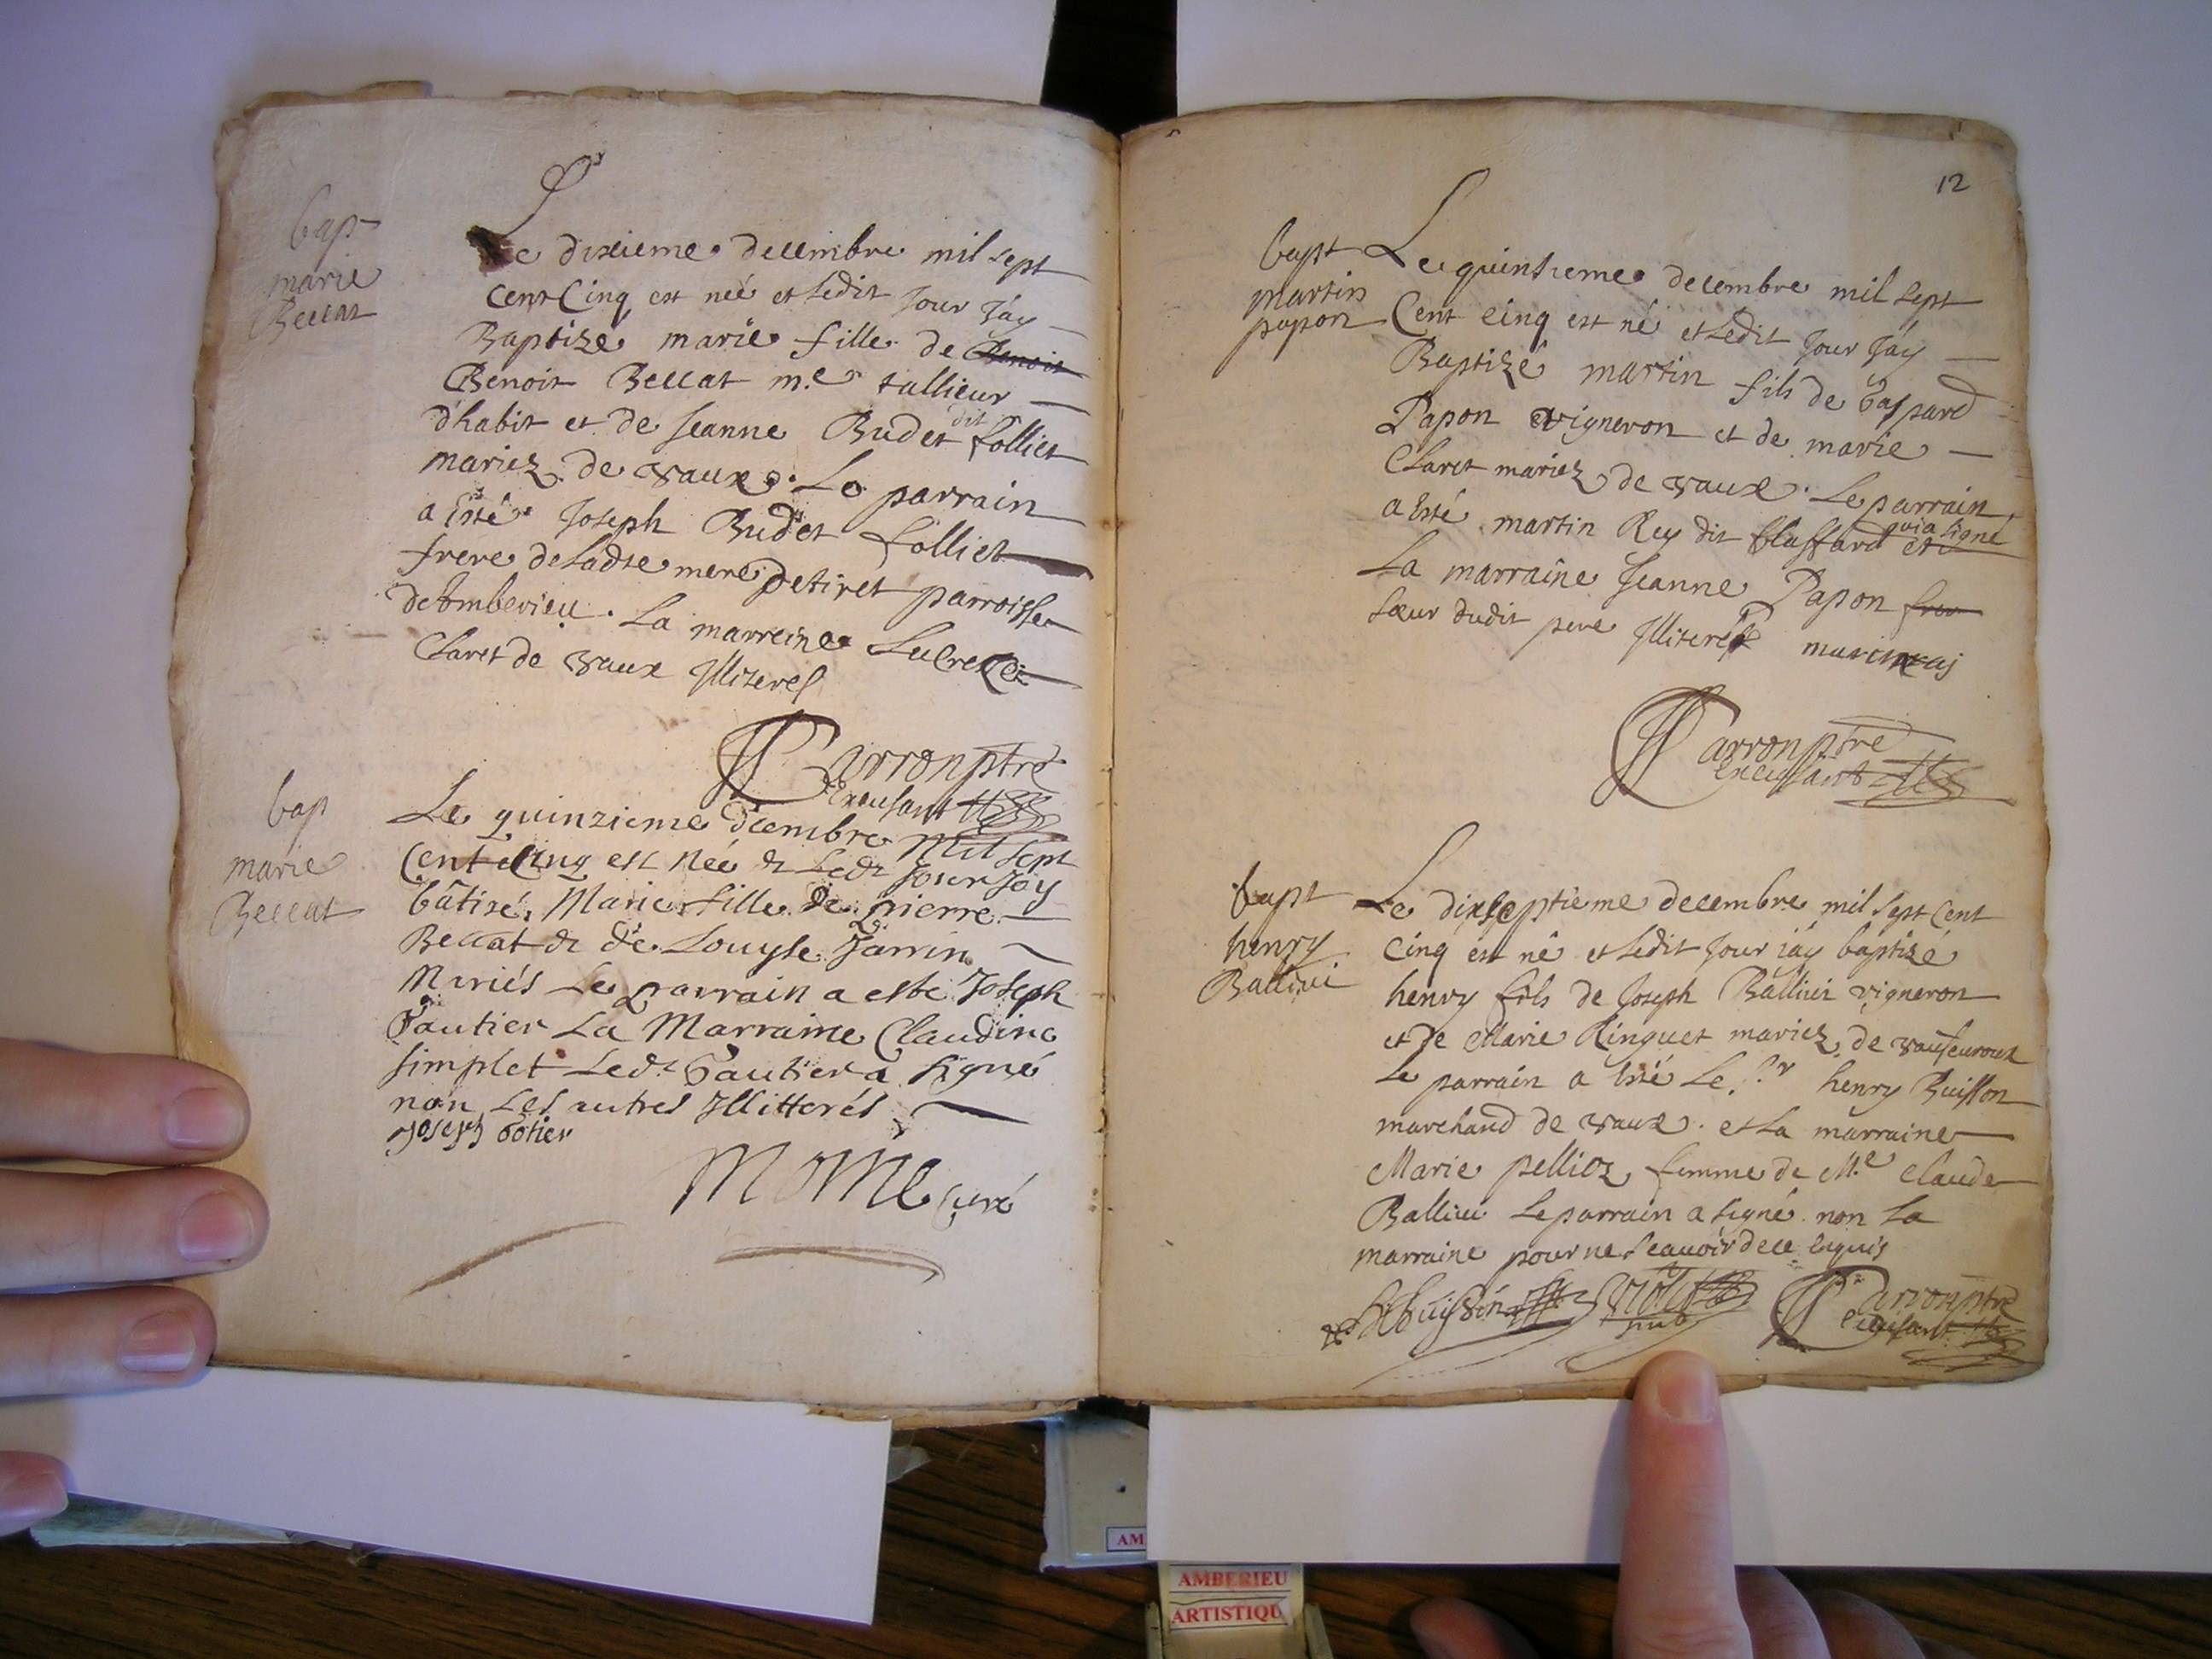 bap
marie
Beccat
Le dixieme decembre mil sept
Cent Cinq est neé et Ledit Jour J'áy
Baptizé marie fille de Benoit
Benoit Beccat m.e tallieur
d'habit et de Jeanne Budet dit folliet
mariez de vaux. Le parrain
a Esté Joseph Budet folliet
frere de Ladte mere de tiret parroisse
de Amberieu. La marreine Lucresse
Claret de vaux Illiteres
Carron ptre
Excusant
bap
marie
Beccat
Le quinzieme decembre Mil Sept
Cent Cinq est Née & Ledt Jour J'ay
bâtisé Marie fille de pierre
Beccat & de Louyse Jarrin
Mariés Le parrain a esté Joseph
Gautier La Marraine Claudine
Simplet Ledt Gautier a signé
non Les autres Illitterés
Joseph Gotier
Mome curé
12
bapt
martin
papon
Le quinsieme decembre mil sept
Cent cinq est né et Ledit Jour J'áy
Baptizé martin fils de Gaspard
Papon vigneron et de marie
Claret mariez de vaux. Le parrain
a Esté martin Rey dit blaffard qui a signé et
La marraine Jeanne Papon
sœur dudit pere
Carron ptre
Excusant
bapt
henry
Ballivi
Le dixseptieme decembre mil sept Cent
Cinq est né et Ledit Jour j'áy baptizé
henry fils de Joseph Ballivi vigneron
et de Marie Ringuet mariez de
Le parrain a Esté Le S.r henry Buisson
marchand de vaux. et La marraine
Marie pellioz femme de M.e Claude
Ballivi Le parrain a signé non La
marraine pour ne scauoir de ce Equis
Hbuisson
Carron ptre
Excusant
AM
AMBERIEU
ARTISTIQU